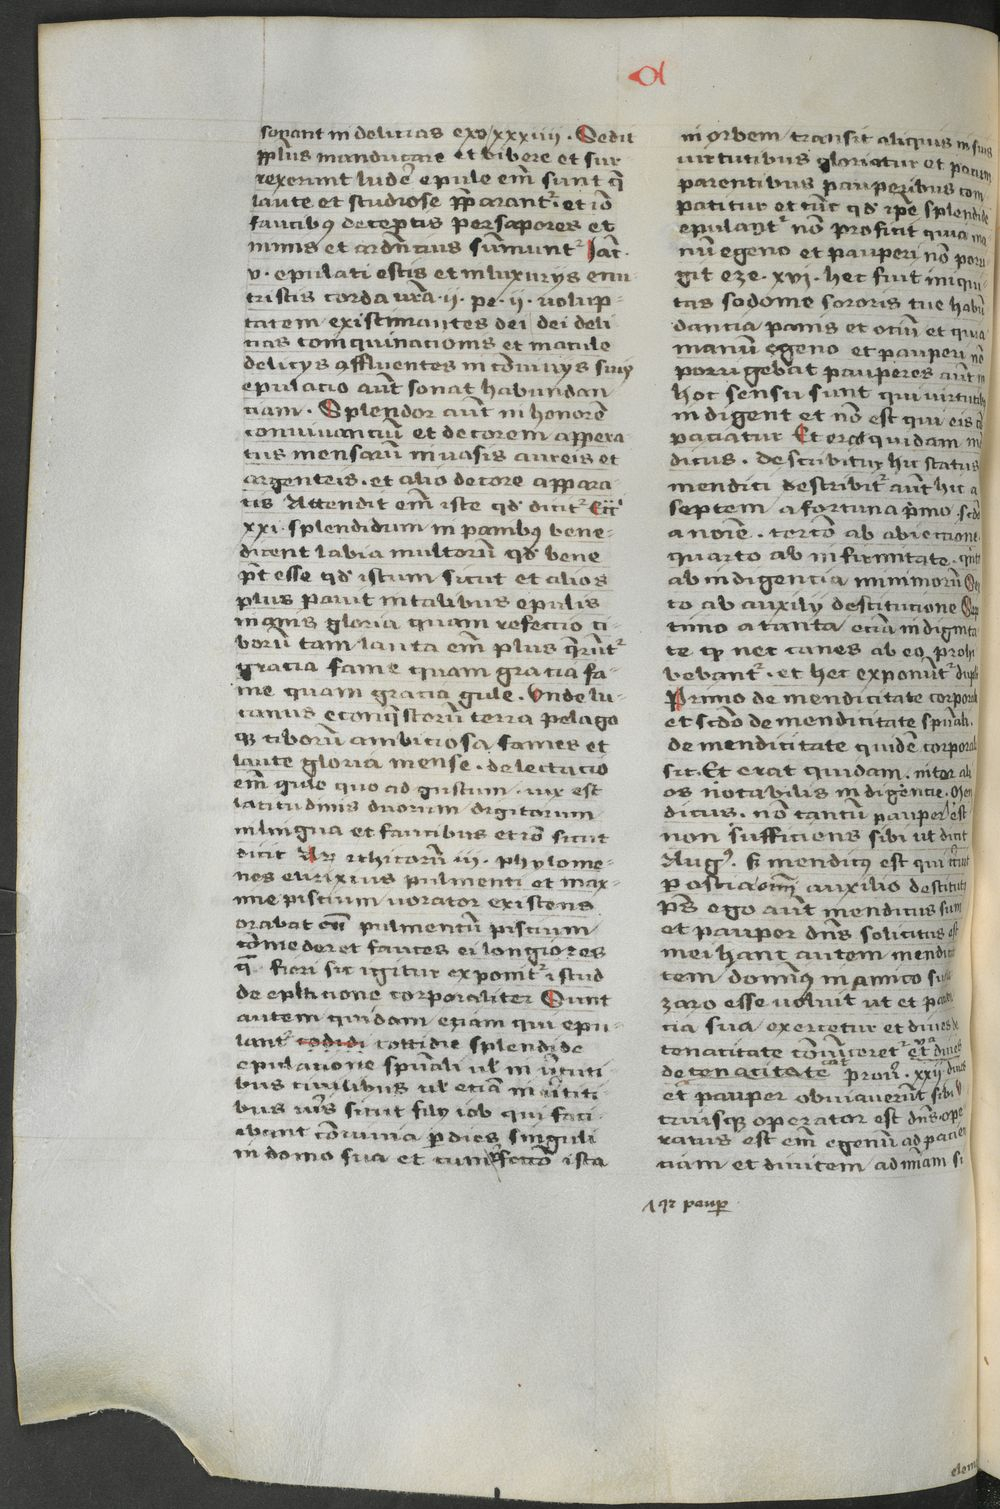 a
sonant in delicias exo xxxiiii . Sedit
pplus manducare et bibere et sur
rexerunt ludere epule em̄ sunt q̄
laute et studiose pp̄arant² . et iō
faucibus deceptis per sapores et
nimis et ardēcius sūmunt² Jac̄ .
v . epulati estis et in luxuriis enu
tristis corda vrā . ii . pe . ii . volup-
tatem existimantes dei dei deli
cias coinquinacionis et macule
delicijs affluentes in cōviviis suis
epulacio aūt sonat habundan
ciam . Splendor aūt in honorē
convivanciū et decorem appera
tus mensarū in vasis aureis et
argenteis . et alio decore appara-
tis Attendit em̄ iste qd' dicit² Ecc̄i
xxi . splendidum in panibus bene-
dicent labia multorū qd' bene
pt̄ esse qd' istum sicut et alios
plus pavit in talibus epulis
inanis gloria quam refectio ci-
borū tam lauta em̄ plus q̄runt²
gracia fame quam gracia fa-
me quam gracia gule . Unde lu-
canus et conq̄storū terra pelago
q̨ ciborū ambiciosa fames et
laute gloria mense . delectacio
em̄ gule quo ad gustum . vix est
latitudinis duorum digitorum
in lingua et faucibus et iō sicut
dicit Ar̄ ethicorū iii . phylome-
nes eurixius pulmenti et max-
ime piscium vorator existens
orabat cū pulmentū piscium
cōmederet fauces ei longiores
q̄ fieri sic igitur exponit² istud
de eplacione corporaliter Sunt
autem quidam eciam qui epu-
lant² codidi cottidie splendide
epulacione spūali ul' in v̄tuti
bus civilibus ul' etiam in v̄tuti
bus v̄is sicut filij iob qui faci-
ebant cōvivia p dies singuli
in domo sua et cum ista
in orbem transit aliquis in suis
virtutibus gloriatur et parum
parentibus pauperibus com
patitur et tūc qd' ipe splendide
epulant² nō proficit quia ma
nū egeno et pauperi nō pori
git eze . xvi . hec fuit iniqui-
tas sodome sororis tue habū
dancia panis et ociū et quia
manū egeno et pauperi nō
porrigebat pauperes aūt in
hoc sensu sunt qui virtutibus
indigent et nō est qui eis cō
paciatur Et erat quidam mē
dicus . describitur hic status
mendici describit² aūt hic a
septem a fortuna p̄mo . scdō
a noīe . tercō ab abiectione
quarto ab infirmitate . qnto
ab indigencia minimorū Sex
to ab auxilij destitucione Sep
timo a tanta eciā indignita
te qz nec canes ab eo prohi
bebant² . et hec exponūt² dupl'r
Primo de mendicitate corporali
et scdō de mendicitate spūali .
de mendicitate quidē corporali
sic . Et erat quidam . inter ali
os notabilis indigēcie . Men
dicus . nō tantū pauper est
non sufficiens sibi ut dicit
Aug⁹ . s; mendicus est qui circuit
p ostia oīm auxilio destitut⁹
ps̄ ego aūt mendicus sum
et pauper dns̄ solicitus est
mei hanc autem mendici
tem dominus in amico suo la
zaro esse voluit ut et pacien
cia sua exercetur et dives de
tenacitate cōvinceret² et dives
de tenacitate prov̄ . xxii dives
et pauper obviaverūt sibi v
triusq; operator est dns̄ ope
ratus est em̄ egenū ad pacien
ciam et divitem ad mīam si
ar paup
elem